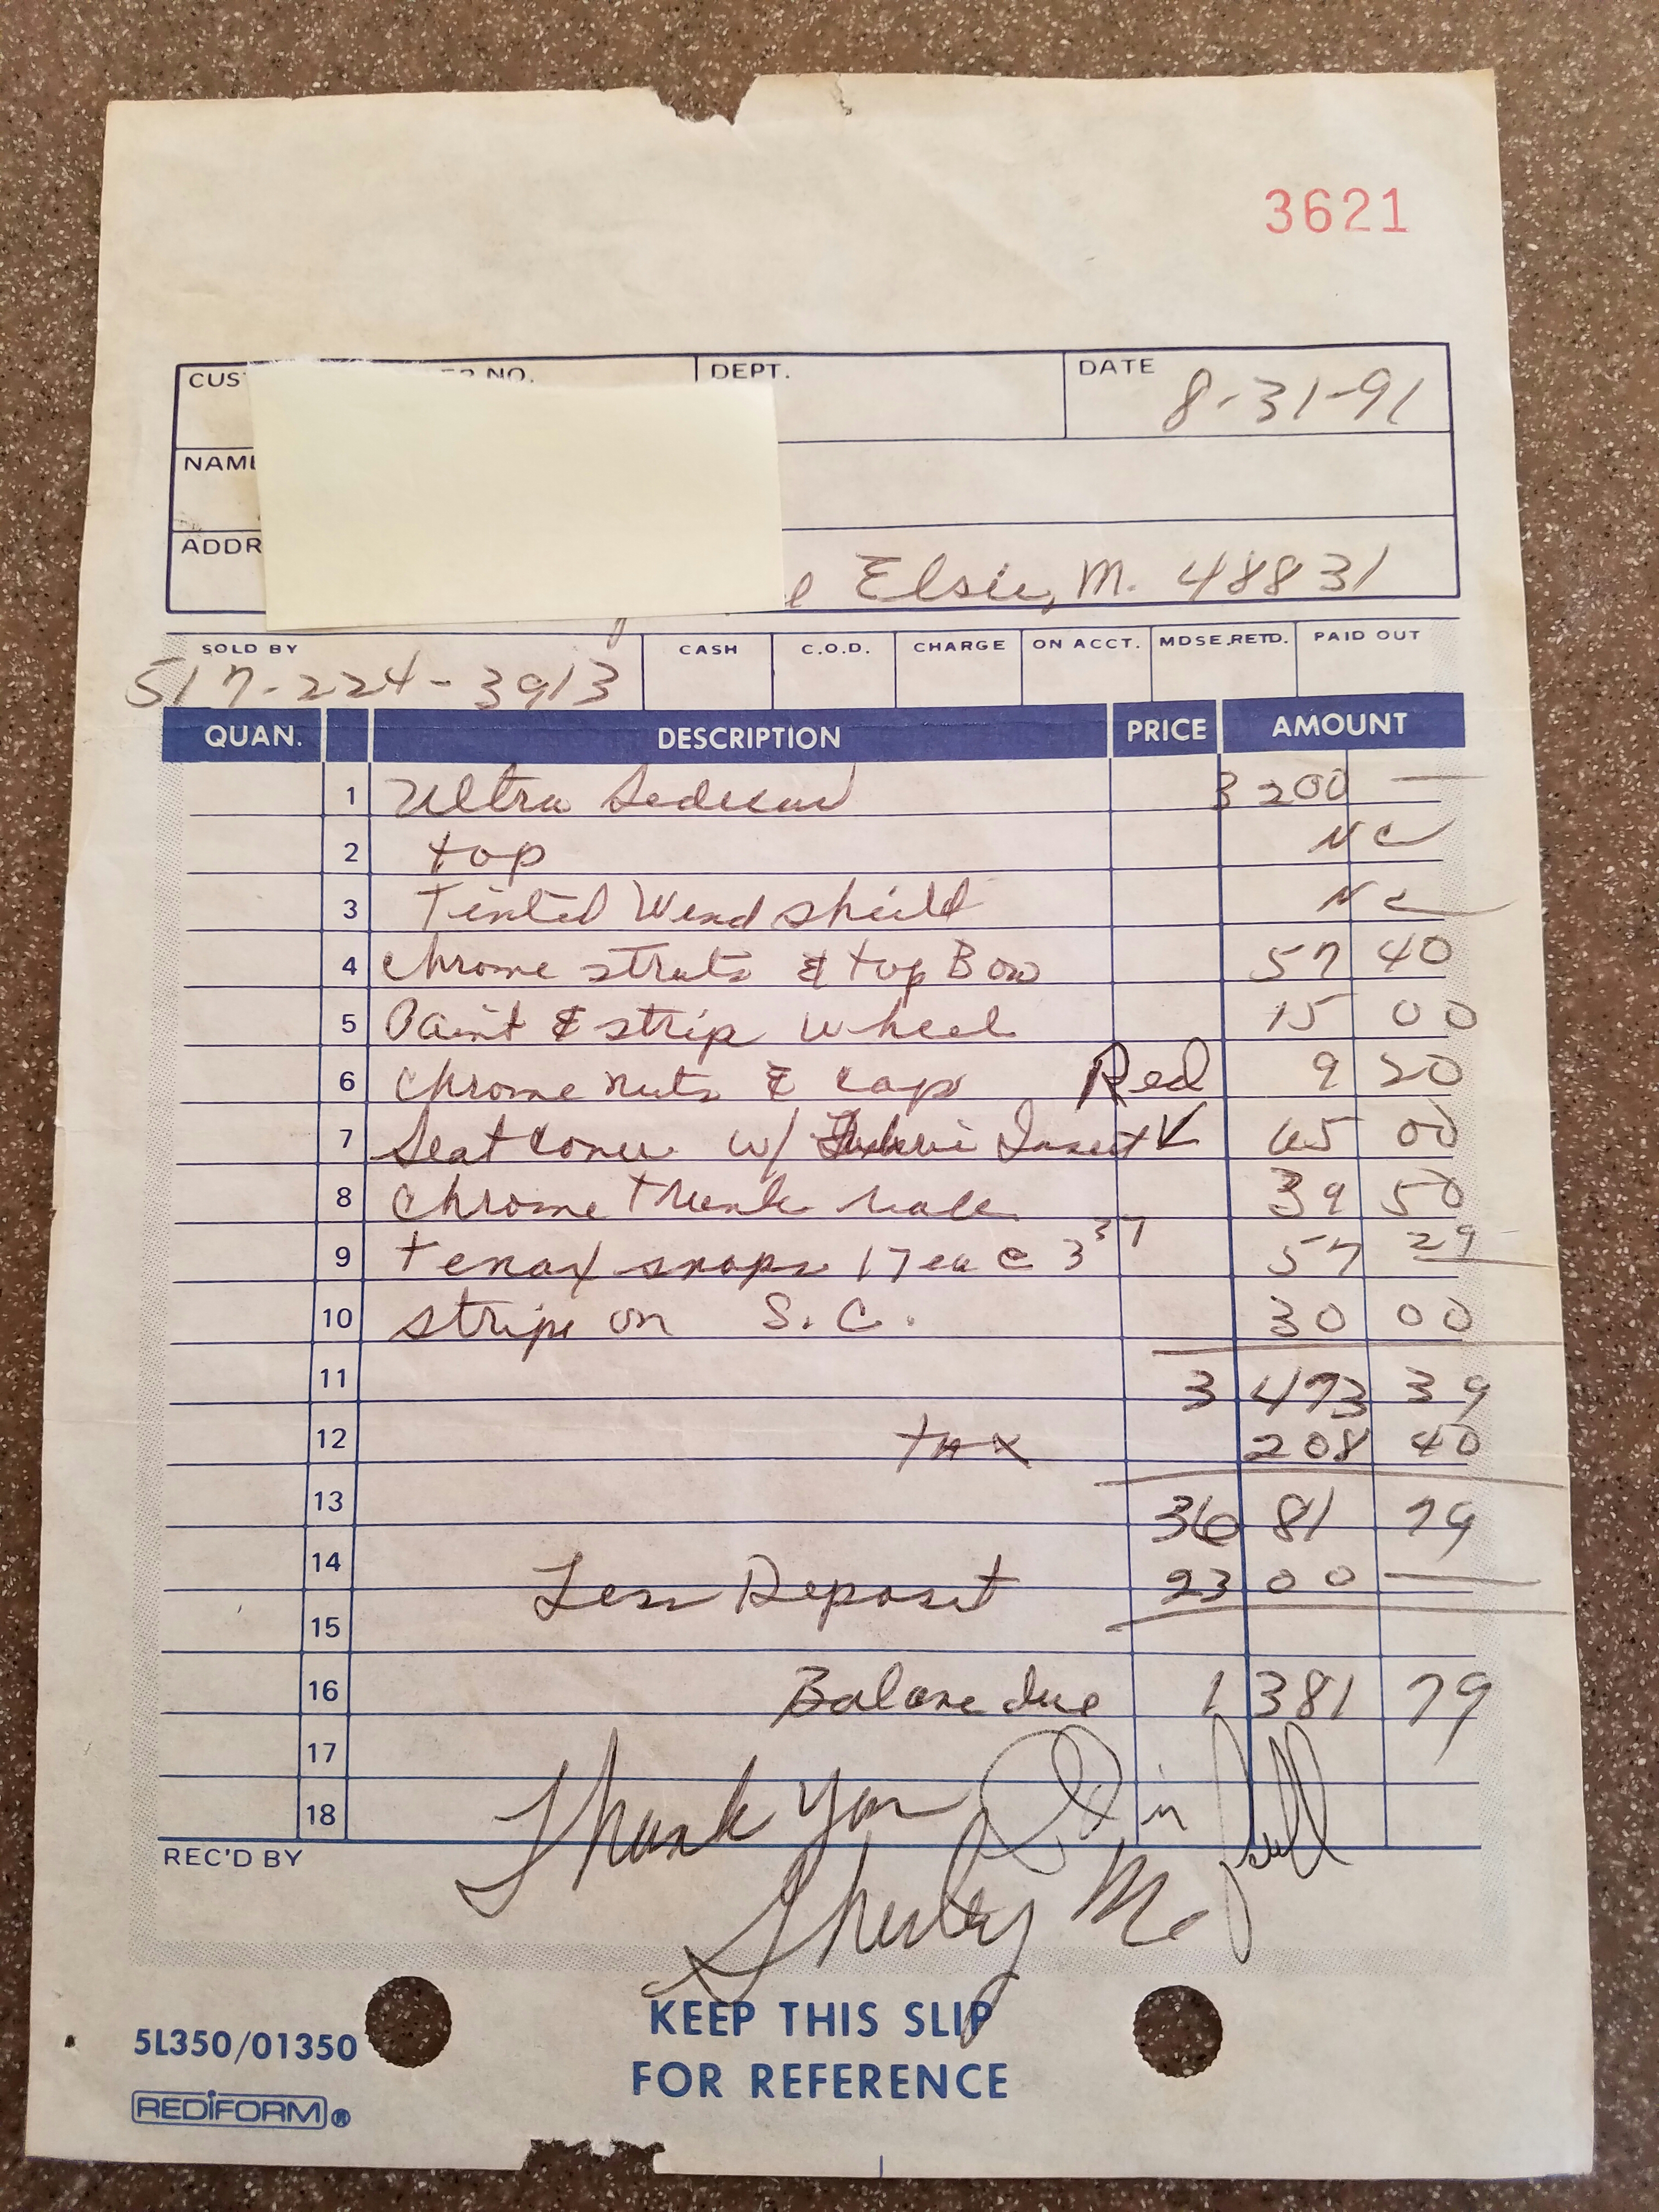 3621
CUS NO. DEPT. DATE 8-31-91
NAME
ADDR Elsie, M. 48831
SOLD BY CASH C.O.D. CHARGE ON ACCT. MDSE. RETD. PAID OUT
517-224-3913
QUAN. DESCRIPTION PRICE AMOUNT
1 Ultra 3200 —
2 top NC
3 Tinted Windshield NC
4 Chrome struts & top Bow 57 40
5 Paint & strip wheel 15 00
6 Chrome nuts & caps Red 9 20
7 Seat cover w/ Insert 65 00
8 Chrome trunk rack 39 50
9 tenax snaps 17 ea @ 3 37 57 29
10 stripe on S.C. 30 00
11 3 473 39
12 tax 208 40
13 3681 79
14 Less Deposit 2300 —
15
16 Balance due 1 381 79
17
18 Thank You
REC'D BY Shirley
KEEP THIS SLIP
FOR REFERENCE
5L350/01350
REDIFORM®